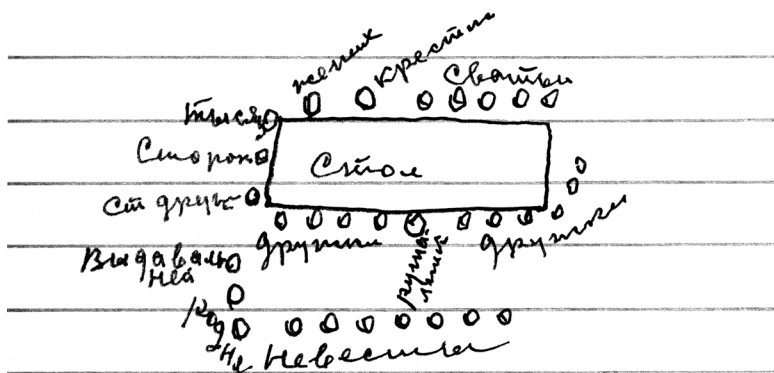 жених
Крестн
Сваты
Тысяц
Сторож
Стол
Ст друж
дружки
дружки
Выдаваль
ней
Род
ня Невесты